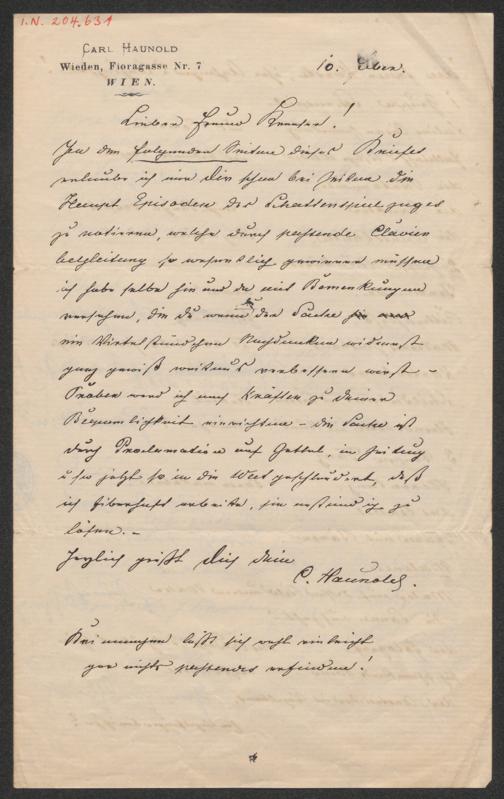 I.N. 204.631
CARL HAUNOLD
Wieden, Fioragasse Nr. 7
WIEN.
10. Feber.
Lieber Freund Kremser!
In den folgenden Seiten dieses Briefes
erlaube ich mir Dir schon bei Zeiten die
Haupt Episoden des Schattenspielzuges
zu notieren, welche durch passende Clavier
begleitung so wesentlich gewinnen müssen
ich habe selbe hin und da mit Bemerkungen
versehen, die du wenn du der Sache
ein Viertelstündchen Nachdenken widmest
ganz gewiß weitaus verbessern wirst –
Proben werd ich nach Kräften zu deiner
Bequemlichkeit einrichten – die Sache ist
durch Proclamation auf Zettel, in Zeitung
u sw jetzt so in die Welt geschleudert, daß
ich fieberhaft arbeite, sie anständig zu
lösen. –
Herzlich grüßt Dich Dein
C. Haunold.
Bei manchen läßt sich wohl vielleicht
gar nichts passendes erfinden!